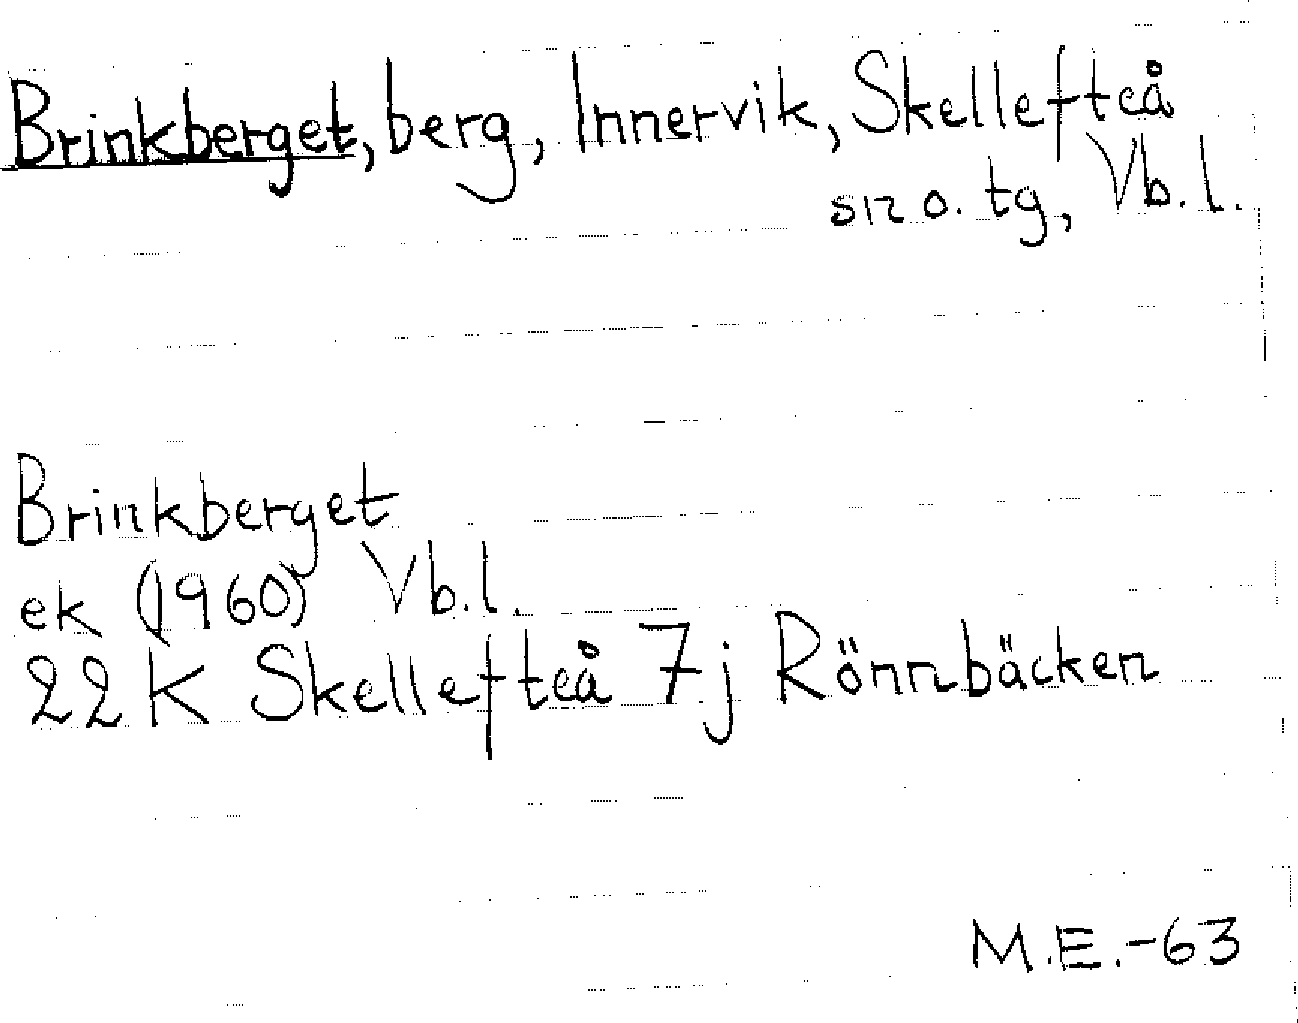 Brinkberget, berg, Innervik, Skellefteå
sn o. tg, Vb. l.
Brinkberget
ek (1960) Vb. l.
22 K Skellefteå 7j Rönnbäcken
M.E.-63